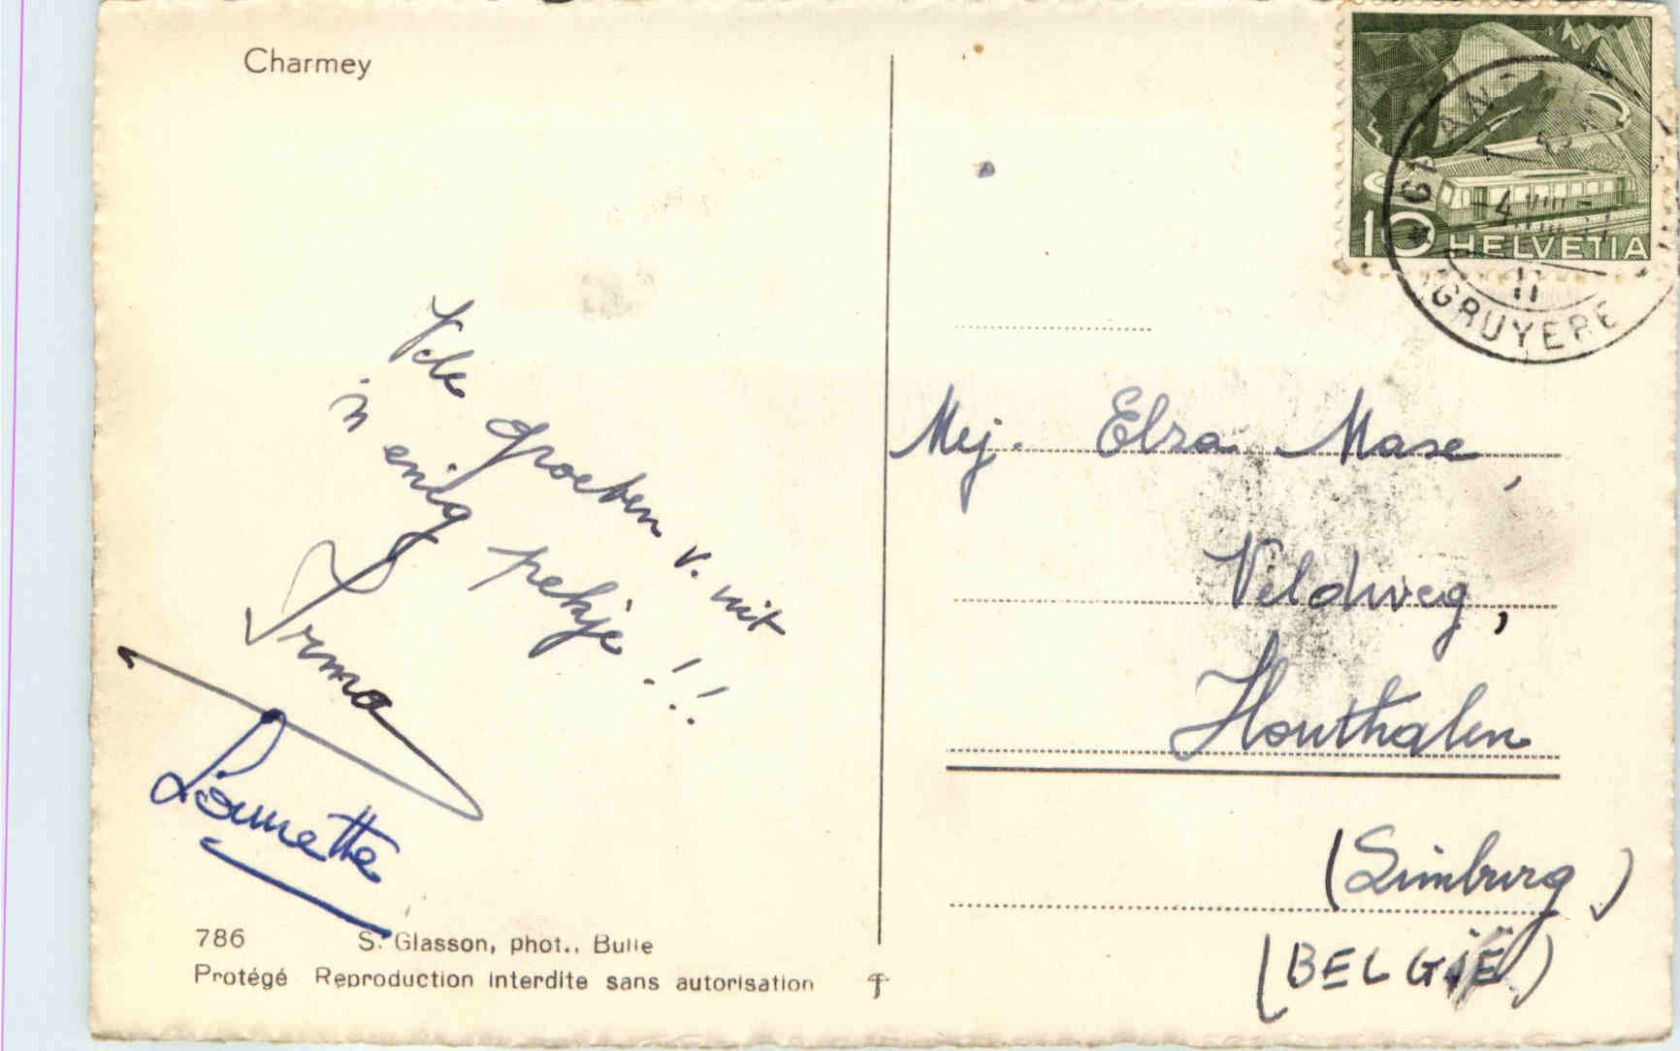 Charmey
Vele groeten v. uit
'n enig pekje!!
Irma
786
S. Glasson, phot., Bulle
Protégé Reproduction interdite sans autorisation
10 HELVETIA
GRUYERE
Mej. Elza Mase,
Veldweg,
Houthalen
(Limburg)
(BELGIË)